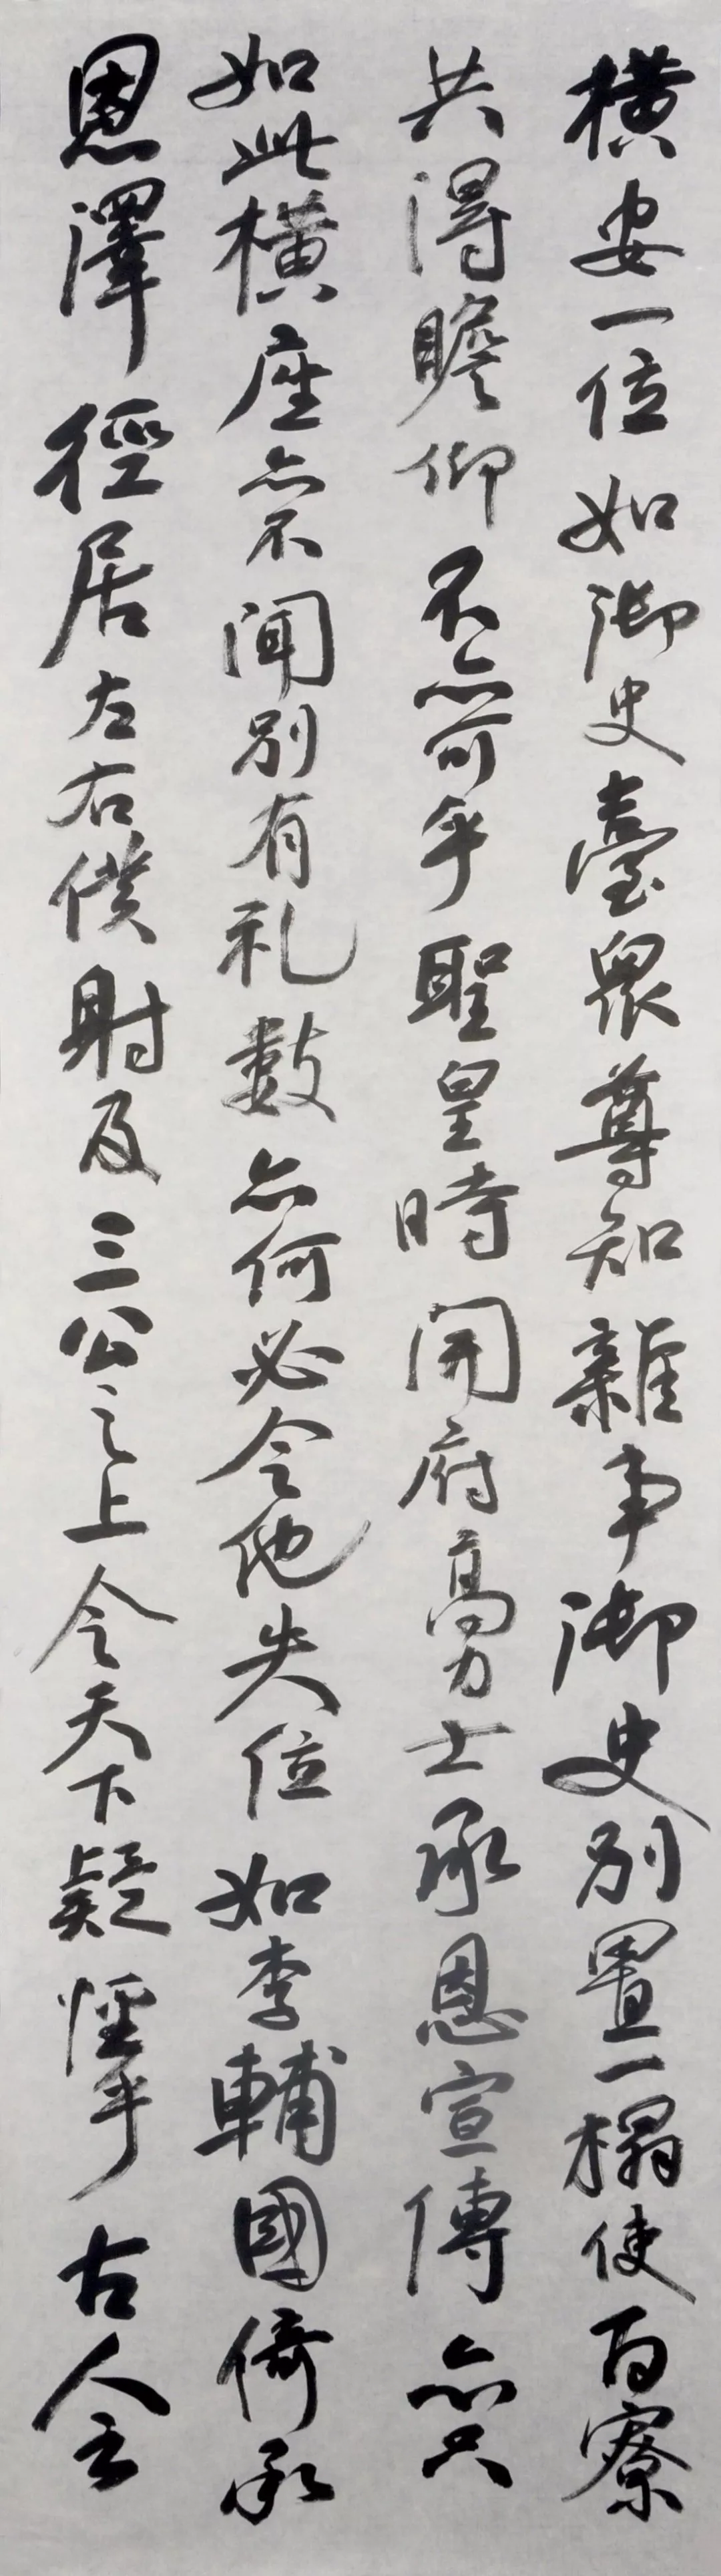 橫安一位如御史臺眾尊知雜事御史別置一榻使百寮
共得瞻仰不亦可乎聖皇時開府高力士承恩宣傳亦只
如此橫座亦不聞別有礼數亦何必令他失位如李輔國倚承
恩澤徑居左右僕射及三公之上令天下疑怪乎古人云